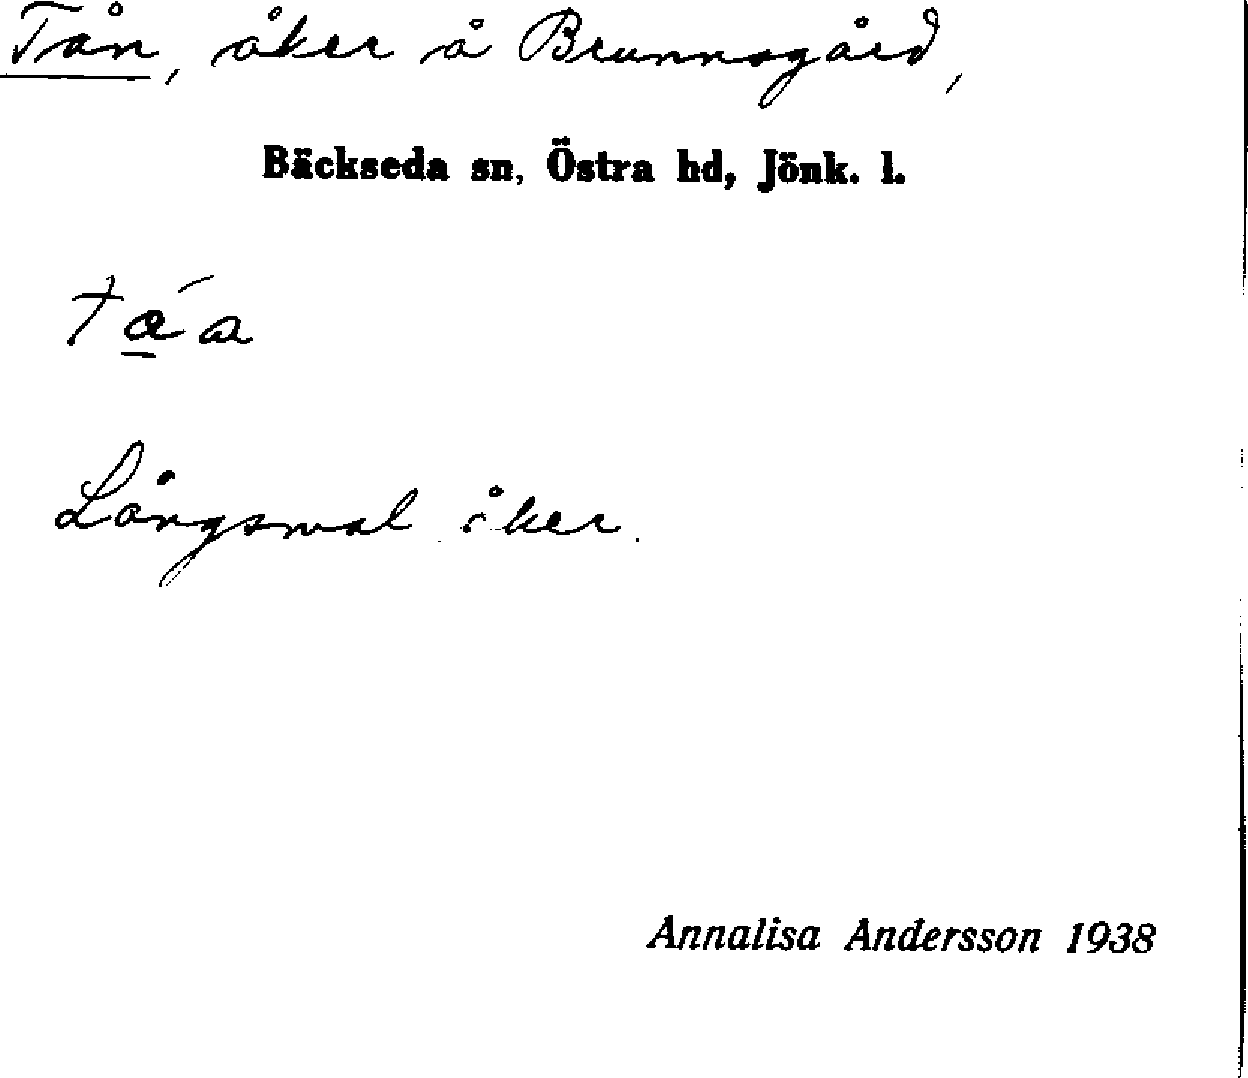 Tån, åker å Brunnsgård,
Bäckseda sn, Östra hd, Jönk. l.
ta̲´a
Långsmal åker.
Annalisa Andersson 1938